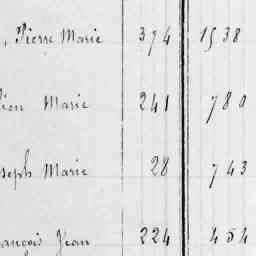 , Pierre Marie 374 1538
lien Marie 241 780
seph Marie 28 743
ançois Jean 224 454